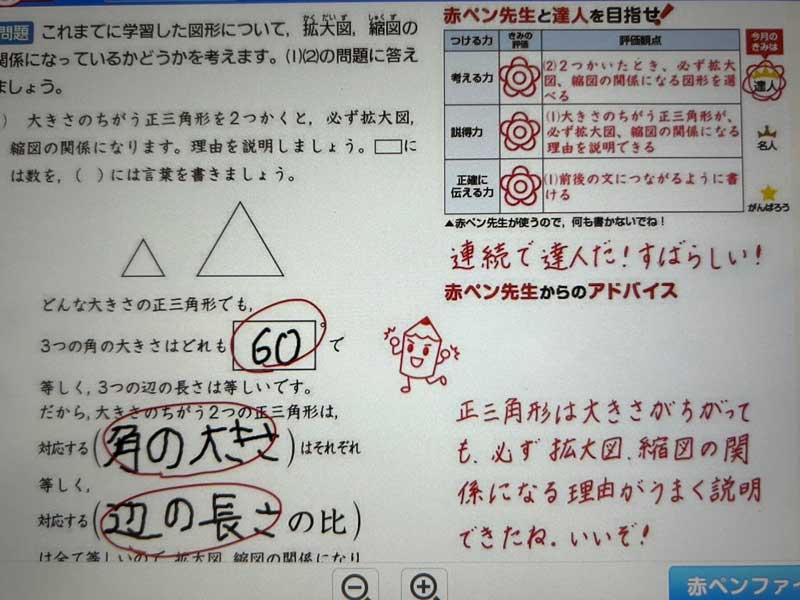 問題 これまでに学習した図形について，拡大図，縮図の
関係になっているかどうかを考えます。(1)(2)の問題に答え
ましょう。
大きさのちがう正三角形を2つかくと，必ず拡大図，
縮図の関係になります。理由を説明しましょう。□に
は数を，（ ）には言葉を書きましょう。
どんな大きさの正三角形でも，
3つの角の大きさはどれも 60° で
等しく，3つの辺の長さは等しいです。
だから，大きさのちがう2つの正三角形は，
対応する（角の大きさ）はそれぞれ
等しく，
対応する（辺の長さの比）
は全て等しいので，拡大図，縮図の関係になり
赤ペン先生と達人を目指せ！
つける力 きみの評価 評価観点 今月のきみは
考える力 (2)2つかいたとき、必ず拡大
図、縮図の関係になる図形を選
べる
達人
説得力 (1)大きさのちがう正三角形が、
必ず拡大図、縮図の関係になる
理由を説明できる
名人
正確に伝える力 (1)前後の文につながるように書
ける
がんばろう
▲赤ペン先生が使うので，何も書かないでね！
連続で達人だ！すばらしい！
赤ペン先生からのアドバイス
正三角形は大きさがちがって
も、必ず拡大図、縮図の関
係になる理由がうまく説明
できたね。いいぞ！
赤ペンファイ